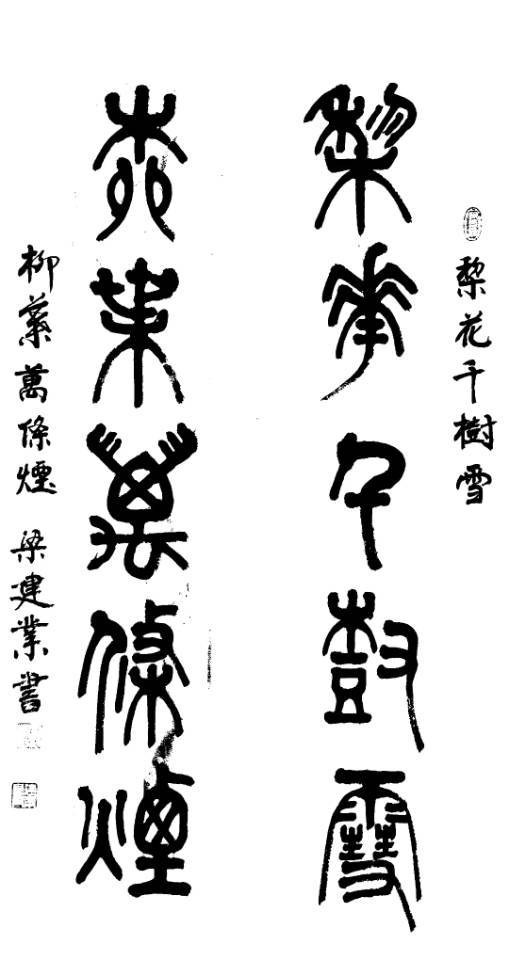 梨花千樹雪
梨花千樹雪
柳葉萬條煙
柳葉萬條煙 梁建業書